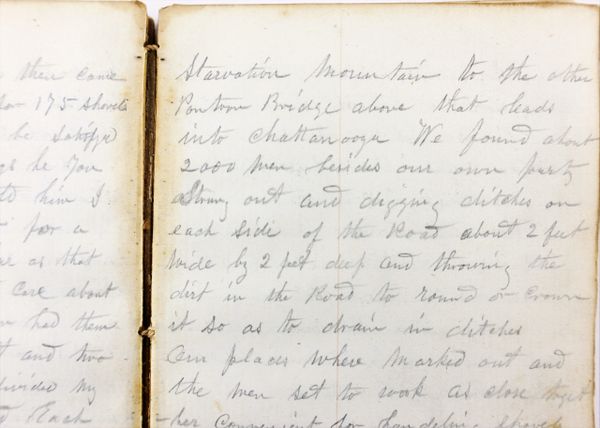 then came
for 175 shovels
be satisfyd
he You
to him I
for a
as that
Care about
had them
and two
divided my
Each
Starvation Mountain to the other
Pontoon Bridge above that leads
into Chattanooga We found about
2000 men besides our own party
Strung out and digging ditches on
each side of the Road about 2 feet
wide by 2 feet deep and throwing the
dirt in the Road to round or Crown
it so as to drain in ditches
Our places where marked out and
the men set to work as close toget
her Convenient for handeling Shovels